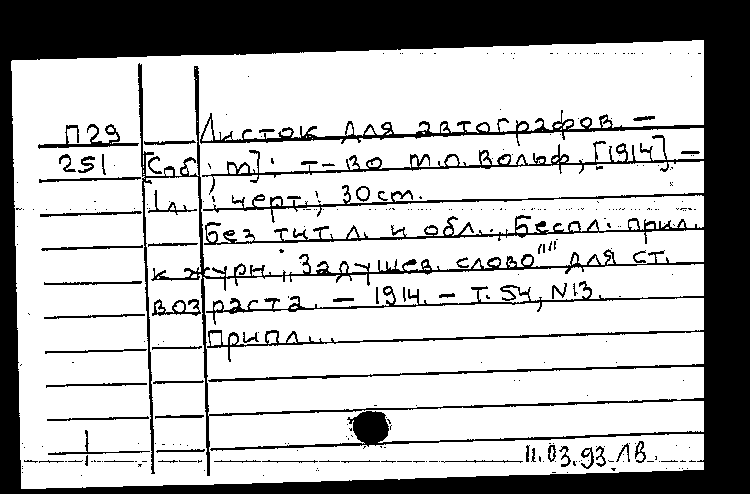 П29 Листок для автографов. —
251 [Спб.; М]: т-во М.О. Вольф, [1914]. —
1 л. : черт.; 30 cm.
Без тит. л. и обл.. „Беспл. прил.
к журн. „Задушев. слово"" для ст.
возраста. — 1914. — Т. 54, N13.
Припл...
11.03.93 ЛВ.